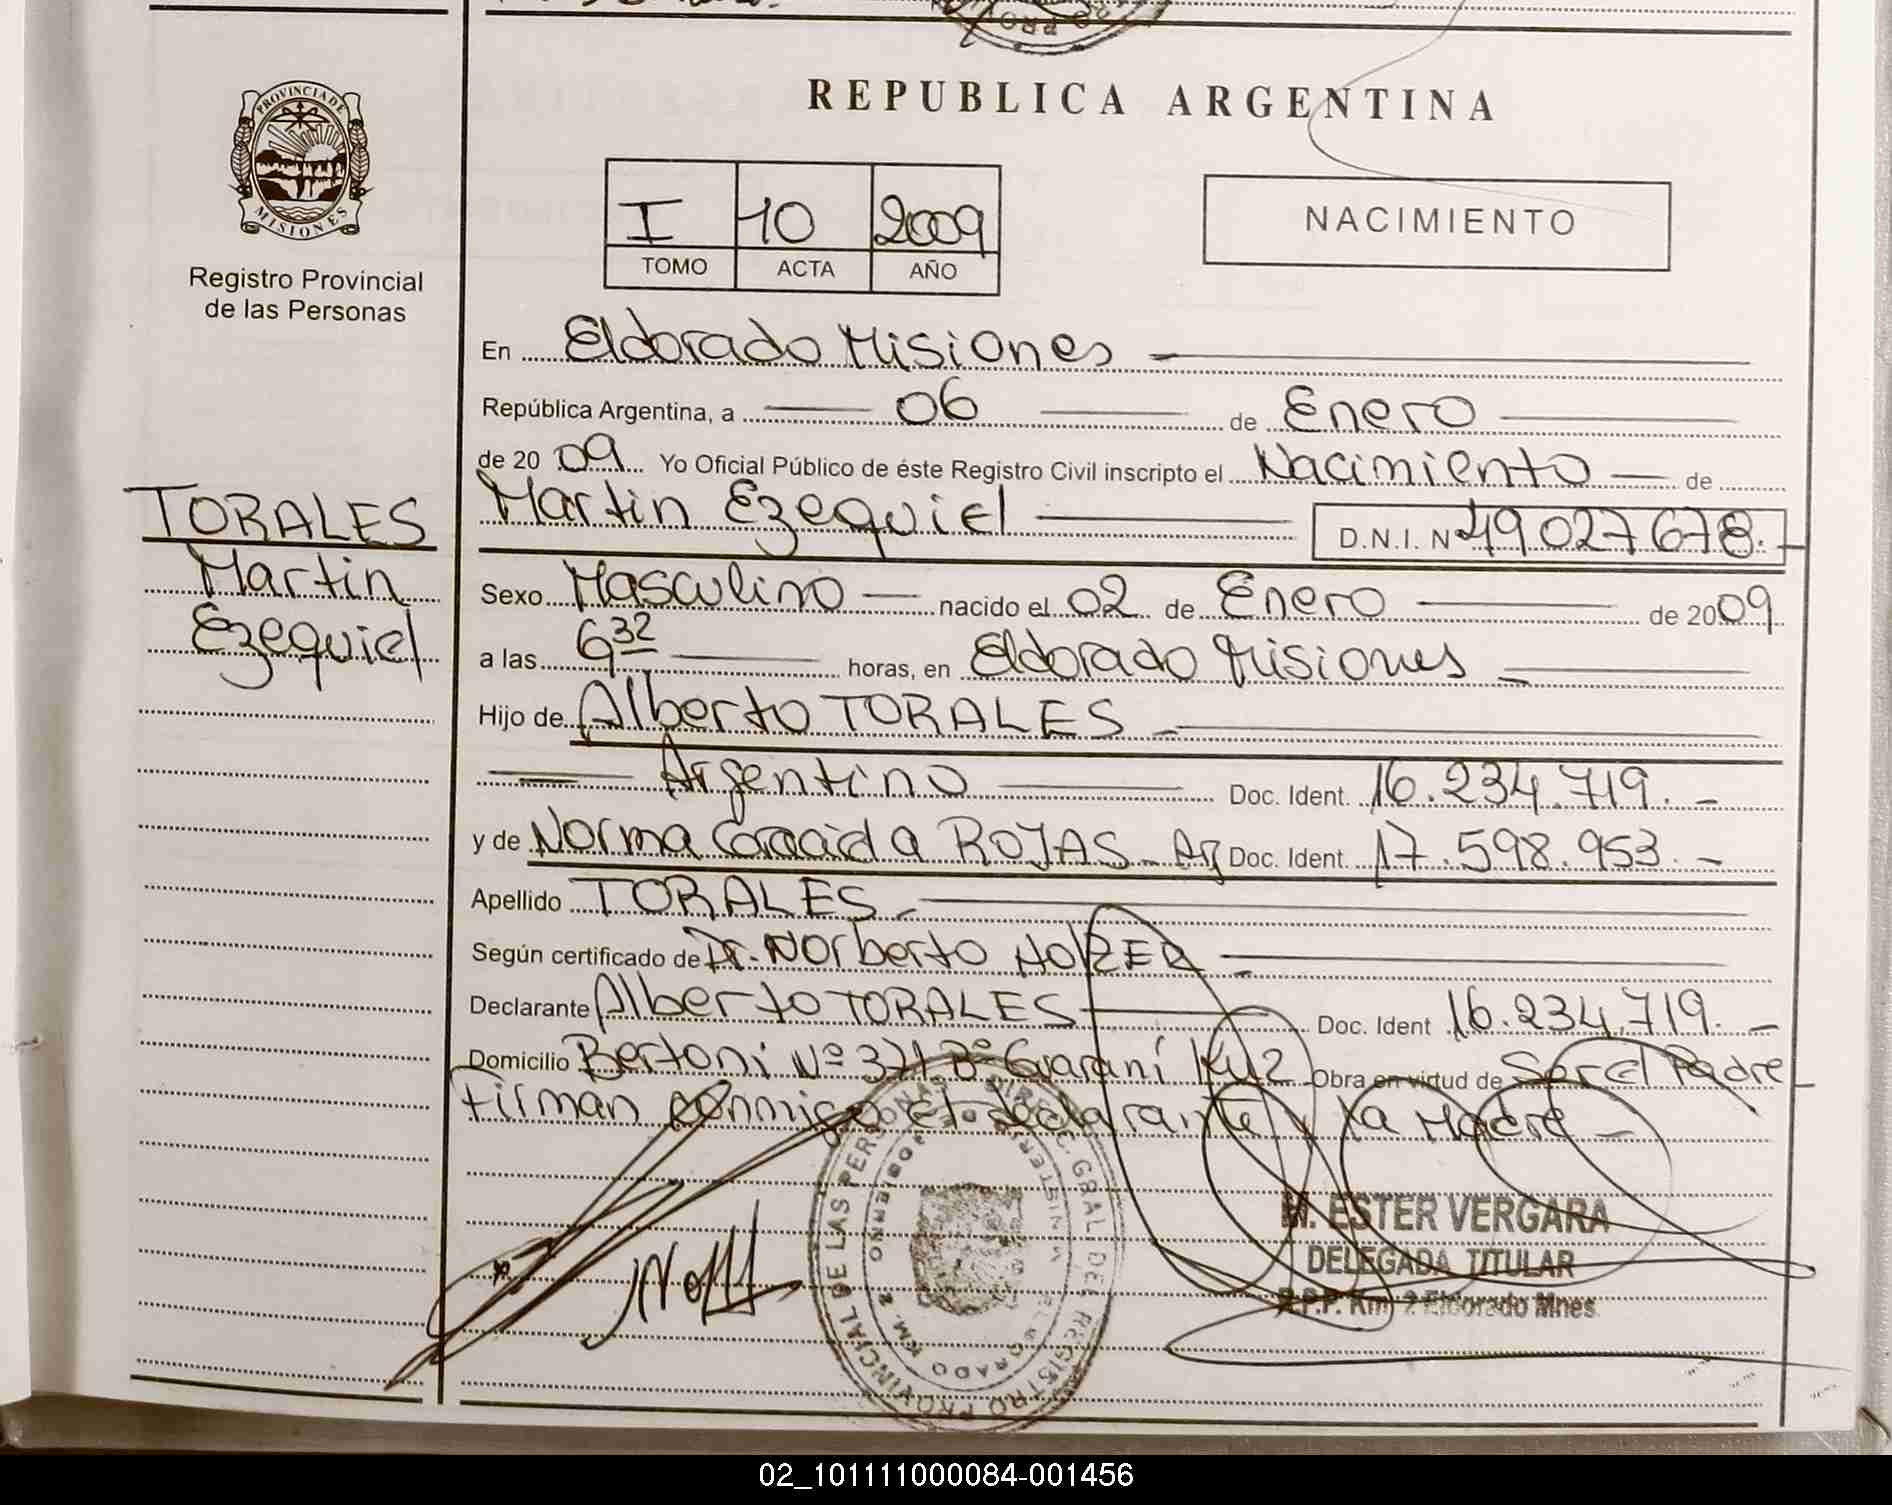 PROVINCIA DE
MISIONES
Registro Provincial
de las Personas
TORALES
Martin
Ezequiel
REPUBLICA ARGENTINA
I 10 2009
TOMO ACTA AÑO
NACIMIENTO
En Eldorado Misiones
República Argentina, a 06 de Enero
de 20 09 Yo Oficial Público de éste Registro Civil inscripto el Nacimiento de
Martin Ezequiel D.N.I. Nº 49027678.-
Sexo Masculino nacido el 02 de Enero de 2009
a las 6 32 horas, en Eldorado Misiones
Hijo de Alberto TORALES
Argentino Doc. Ident. 16.234.719.-
y de Norma ROJAS - Arg Doc. Ident. 17.598.953.-
Apellido TORALES
Según certificado de Dr. Norberto HOLZER
Declarante Alberto TORALES Doc. Ident 16.234.719.-
Domicilio Bertoni Nº 371 Bº Guaraní Km2 Obra en virtud de Ser el Padre
Firman conmigo el declarante y la Madre -
M. ESTER VERGARA
DELEGADA TITULAR
R.P.P. Km. 2 Eldorado Mnes.
DIREC. GRAL DEL REGISTRO PROVINCIAL DE LAS PERSONAS
ELDORADO KM. 2
02_101111000084-001456